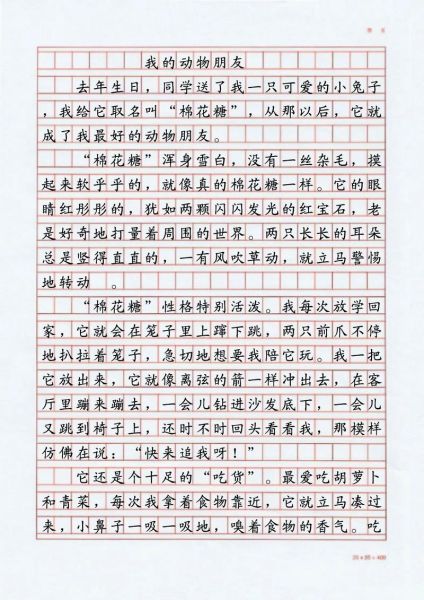 我的动物朋友
去年生日，同学送了我一只可爱的小兔子
，我给它取名叫“棉花糖”，从那以后，它就
成了我最好的动物朋友。
“棉花糖”浑身雪白，没有一丝杂毛，摸
起来软乎乎的，就像真的棉花糖一样。它的眼
睛红彤彤的，犹如两颗闪闪发光的红宝石，老
是好奇地打量着周围的世界。两只长长的耳朵
总是竖得直直的，一有风吹草动，就立马警惕
地转动。
“棉花糖”性格特别活泼。我每次放学回
家，它就会在笼子里上蹿下跳，两只前爪不停
地扒拉着笼子，急切地想要我陪它玩。我一把
它放出来，它就像离弦的箭一样冲出去，在客
厅里蹦来蹦去，一会儿钻进沙发底下，一会儿
又跳到椅子上，还时不时回头看看我，那模样
仿佛在说：“快来追我呀！”
它还是个十足的“吃货”。最爱吃胡萝卜
和青菜，每次我拿着食物靠近，它就立马凑过
来，小鼻子一吸一吸地，嗅着食物的香气。吃